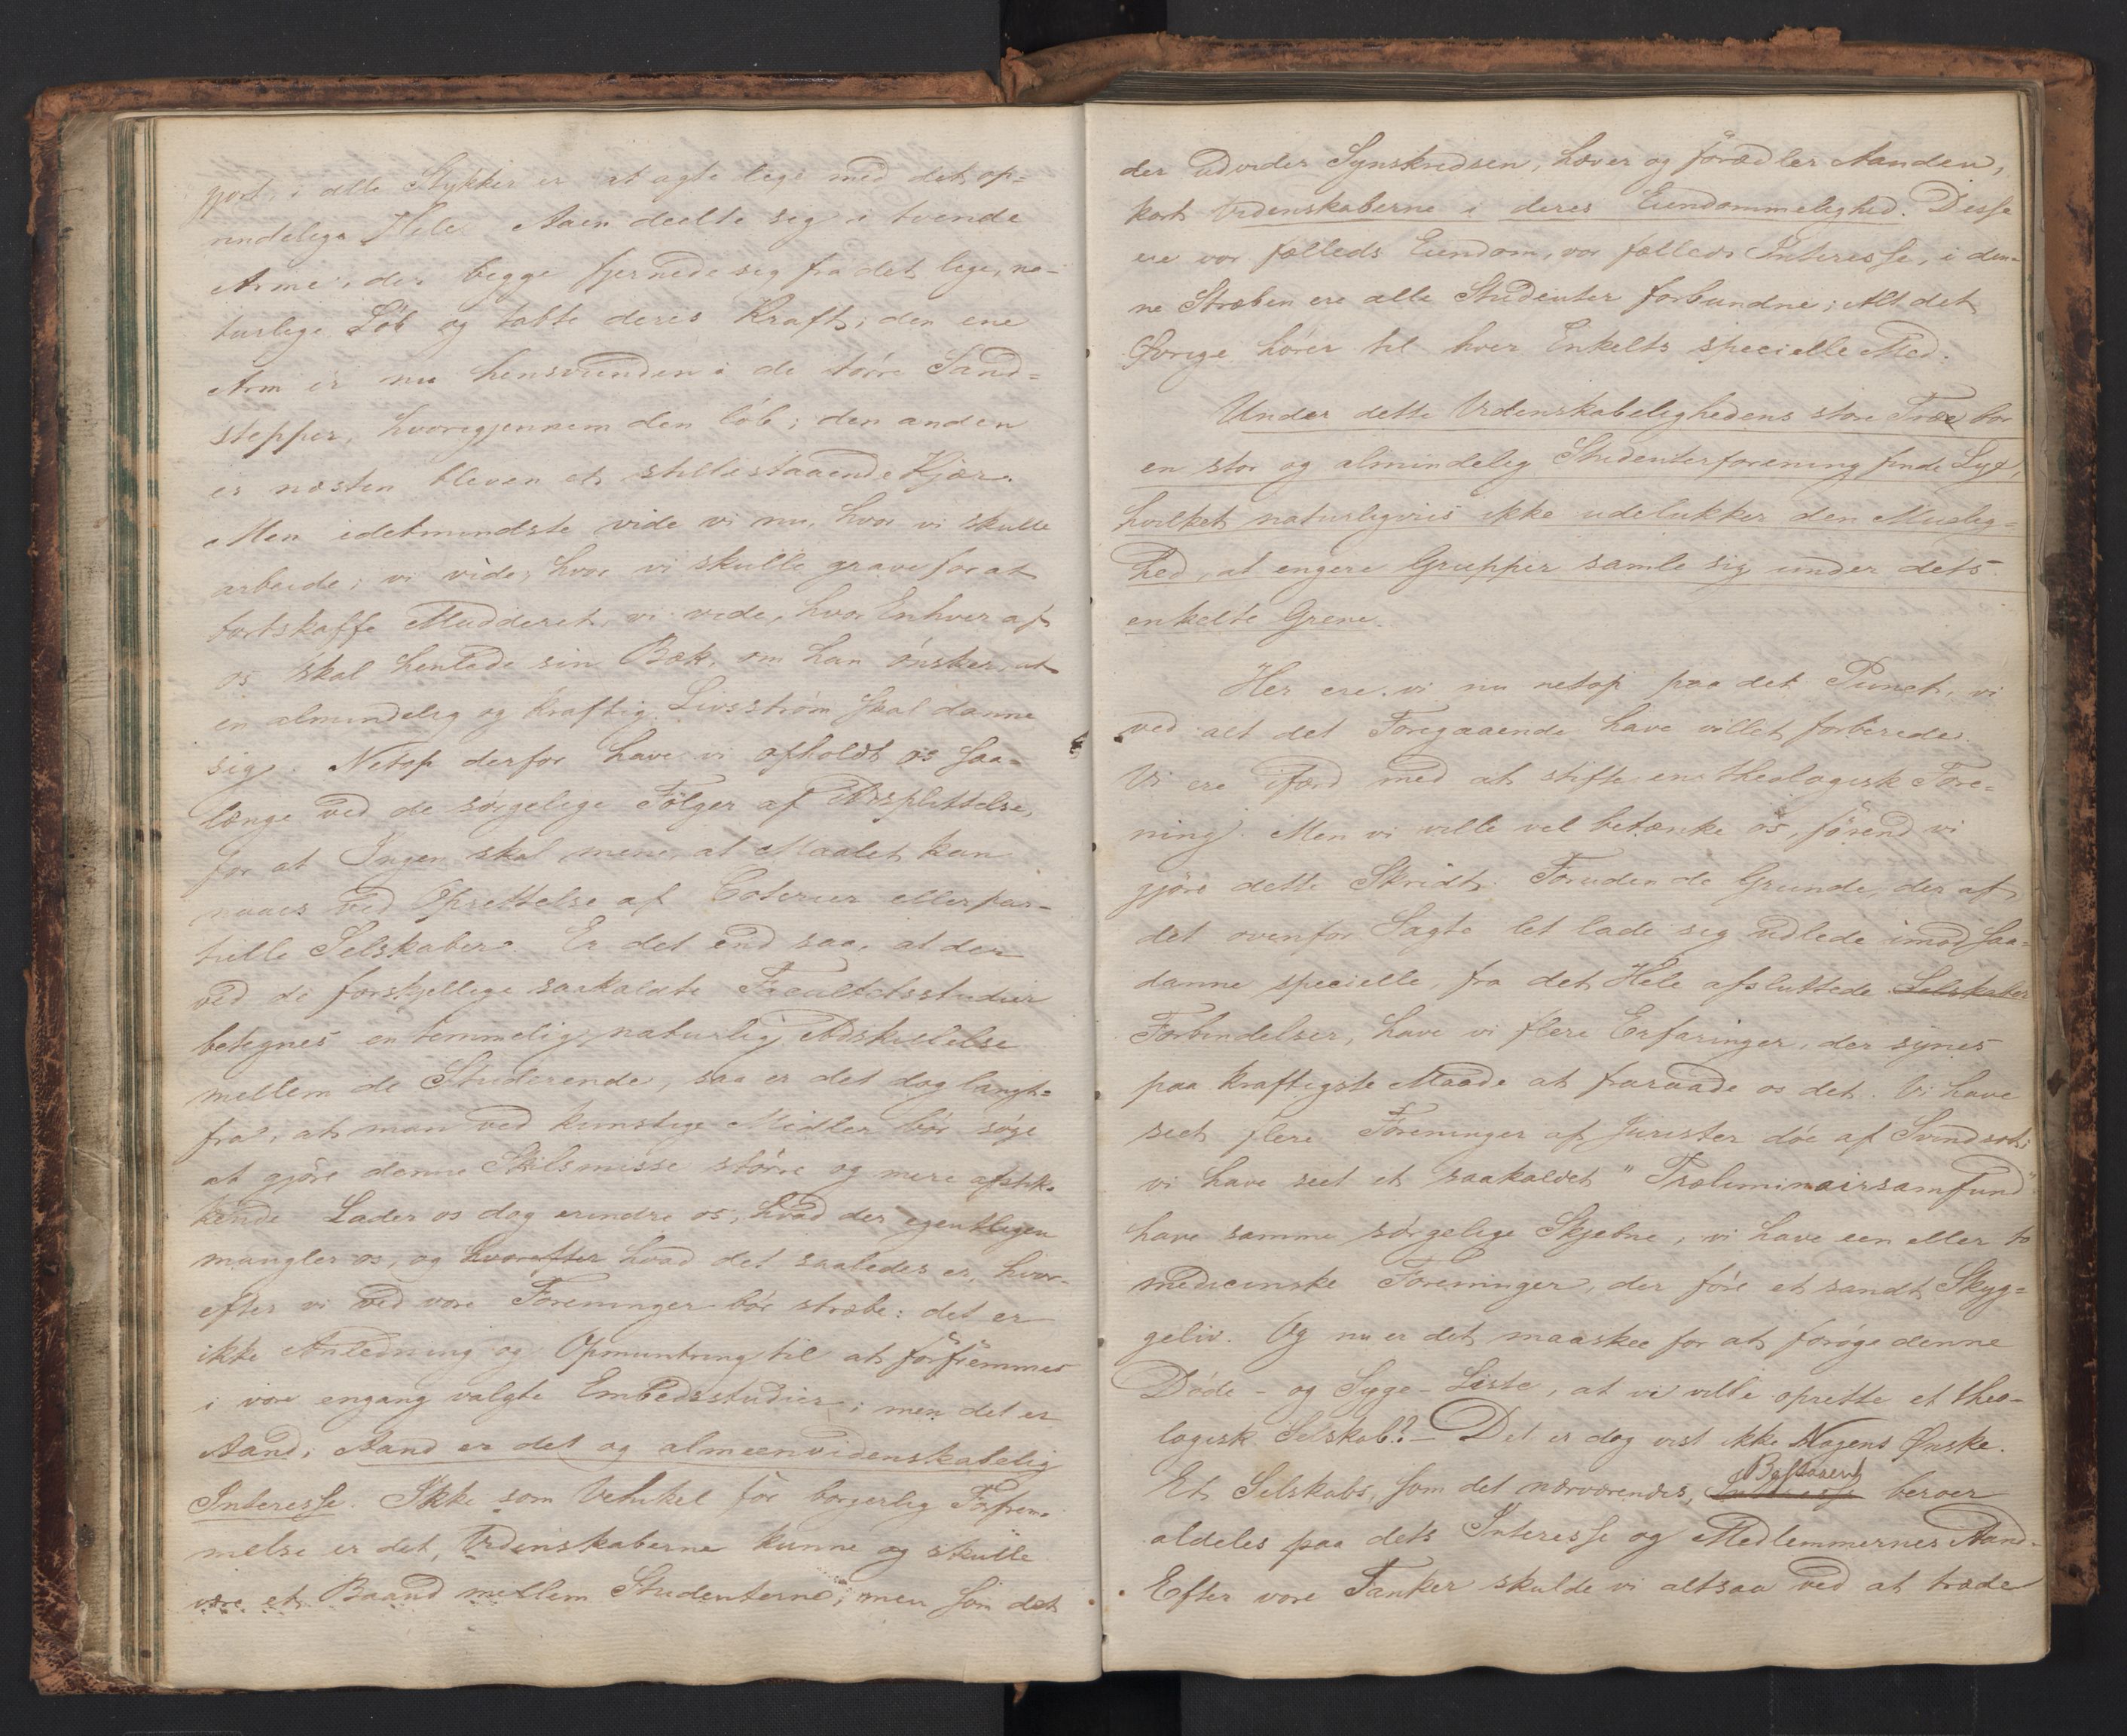 gjort, i alle Stykker er at agte lige med det op-
rindelige Hele. Aaen deelte sig i tvende
Arme, der begge fjernede sig fra det lige, na-
turlige Löb og tabte deres Kraft; den ene
Arm er nu hensvunden i de törre Sand-
stepper, hvorigjennem den löb; den anden
er næsten bleven et stillestaaende Kjær.
Men idetmindste vide vi nu, hvor vi skulle
arbeide; vi vide, hvor vi skulle grave for at
bortskaffe Mudderet, vi vide, hvor Enhver af
os skal henlede sin Bæk, om han önsker, at
en almindelig og kraftig Livsström skal danne
sig. Netop derfor have vi opholdt os saa-
længe ved de sörgelige Fölger af Adsplittelse,
for at Ingen skal mene, at Maalet kan
naaes ved Oprettelse af Coterier eller par-
tielle Selskaber. Er det end saa, at der
ved de forskjellige saakaldte Facultetsstudier
betegnes en temmelig naturlig Adskillelse
mellem de Studerende, saa er det dog langt-
fra, at man ved kunstige Midler bör söge
at gjöre denne Skilsmisse större og mere afstik-
kende. Lader os dog erindre os, hvad der egentligen
mangler os, og hvorefter hvad det saaledes er, hvor-
efter vi ved vore Foreninger bör stræbe: det er
ikke Anledning og Opmuntring til at forfremmes
i vore engang valgte Embedsstudier; men det er
Aand, Aand er det og almeenvidenskabelig
Interesse. Ikke som Vehikel for borgerlig Forfrem-
melse er det, Videnskaberne kunne og skulle
være et Baand mellem Studenterne; men som det
der udvider Synskredsen, hæver og forædler Aanden,
kort Videnskaberne i deres Eiendommelighed. Disse
ere vor fælleds Eiendom, vor fælleds Interesse, i den-
ne Stræben ere alle Studenter forbundne; Alt det
Øvrige hører til hver Enkelts specielle Med.
Under dette Videnskabelighedens store Træ bör
en stor og almindelig Studenterforening finde Lye,
hvilket naturligviis ikke udelukker den Mulig-
hed, at engere Grupper samle sig under dets
enkelte Grene.
Her ere vi nu netop paa det Punct, vi
ved alt det Foregaaende have villet forberede.
Vi ere ifærd med at stifte en theologisk Fore-
ning. Men vi ville vel betænke os, förend vi
gjöre dette Skridt. Foruden de Grunde, der af
det ovenfor Sagte let lade sig udlede imod saa-
danne specielle, fra det Hele afsluttede Selskaber
Forbindelser, have vi flere Erfaringer, der synes
paa kraftigste Maade at fraraade os det. Vi have
seet flere Foreninger af Jurister döe af Svindsot;
vi have seet et saakaldet "Præliminairsamfund"
have samme sörgelige Skjebne, vi have een eller to
medicinske Foreninger, der före et sandt Skyg-
geliv. Og nu er det maaskee for at foröge denne
Döde- og Syge-Liste, at vi ville oprette et theo-
logisk Selskab? - Det er dog vist ikke Nogens Ønske.
Et Selskabs, som det nærværendes, Bestaaen beroer
aldeles paa dets Interesse og Medlemmernes Aand.
Efter vore Tanker skulde vi altsaa ved at træde